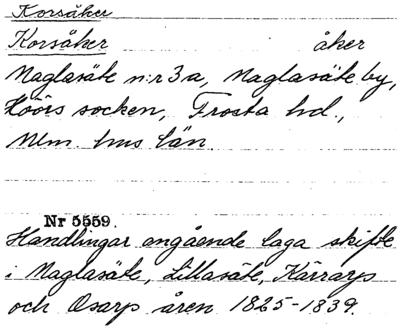 Korsåker
Korsåker åker
Maglasäte n:r 3 a, Maglasäte by,
Höörs socken, Frosta hd.,
Mlm. hus län.
Nr 5559.
Handlingar angående laga skifte
i Maglasäte, Lillasäte, Kärrarp
och Osarp åren 1825-1839.